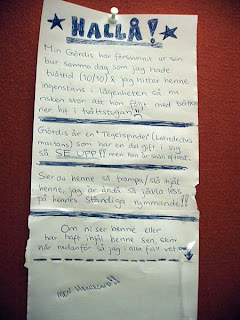 HALLÅ!
Min Gördis har försvunnit ur sin
bur samma dag som jag hade
tvättid (10/10) & jag hittar henne
ingenstans i lägenheten så nu
risken stor att hon följt med tvätten
ner hit i tvättstugan!!
Gördis är en "Tegelspindel" (Latrodectus
mactans) som har en del gift i sig
så SE UPP!! men hon är snäll oftast.
Ser du henne så trampa/slå ihjäl
henne, jag är ändå så jävla less
på hennes ständiga rymmande!!
Om ni ser henne eller
har haft ihjäl henne sen, skriv
här nedanför så jag i alla fall vet